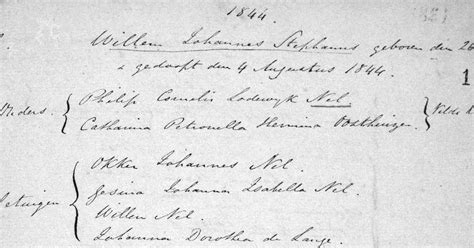 1844.
Willem Johannes Stephanus geboren den 26
& gedoopt den 4 Augustus 1844.
1
Philip Cornelis Lodewyk Nel
Catharina Petronella Hermina Oosthuizen
Okker Johannes Nel.
Gesina Johanna Isabella Nel.
Willem Nel.
Johanna Dorothea de Lange.